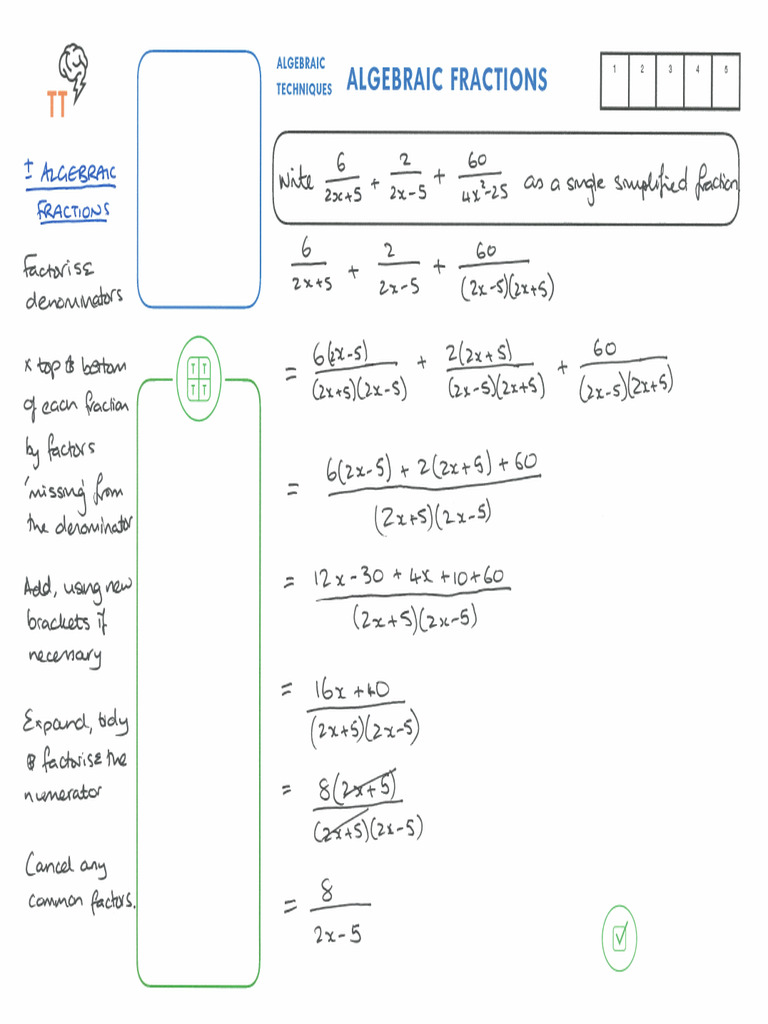 TT
ALGEBRAIC
TECHNIQUES
ALGEBRAIC FRACTIONS
1 2 3 4 5
± ALGEBRAIC
FRACTIONS
Factorise
denominators
x top & bottom
of each fraction
by factors
'missing' from
the denominator
Add, using new
brackets if
necessary
Expand, tidy
& factorise the
numerator
Cancel any
common factors.
T T
T T
Write 6/(2x+5) + 2/(2x-5) + 60/(4x²-25) as a single simplified fraction
6/(2x+5) + 2/(2x-5) + 60/((2x-5)(2x+5))
= 6(2x-5)/((2x+5)(2x-5)) + 2(2x+5)/((2x-5)(2x+5)) + 60/((2x-5)(2x+5))
= (6(2x-5) + 2(2x+5) + 60)/((2x+5)(2x-5))
= (12x-30 + 4x + 10 + 60)/((2x+5)(2x-5))
= (16x + 40)/((2x+5)(2x-5))
= 8(2x+5)/((2x+5)(2x-5))
= 8/(2x-5)